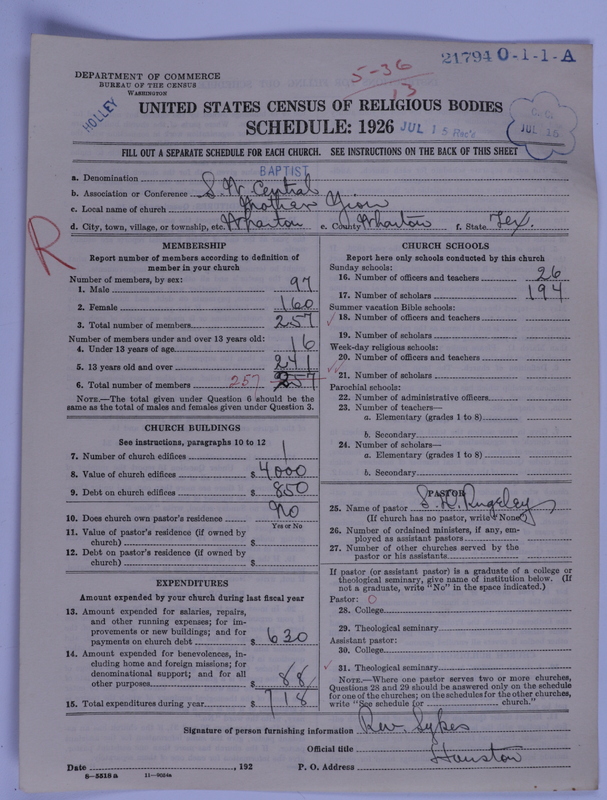 21794 0-1-1-A
5-36
13
DEPARTMENT OF COMMERCE
BUREAU OF THE CENSUS
WASHINGTON
HOLLEY
UNITED STATES CENSUS OF RELIGIOUS BODIES
SCHEDULE: 1926
JUL 15 Rec'd
JUL 16
FILL OUT A SEPARATE SCHEDULE FOR EACH CHURCH. SEE INSTRUCTIONS ON THE BACK OF THIS SHEET
a. Denomination BAPTIST
b. Association or Conference S W Central
c. Local name of church Mother Zion
d. City, town, village, or township, etc. Wharton e. County Wharton f. State Tex.
R
MEMBERSHIP
Report number of members according to definition of
member in your church
Number of members, by sex:
1. Male 97
2. Female 160
3. Total number of members 257
Number of members under and over 13 years old:
4. Under 13 years of age 16
5. 13 years old and over 241
6. Total number of members 257 257
NOTE.—The total given under Question 6 should be the
same as the total of males and females given under Question 3.
CHURCH BUILDINGS
See instructions, paragraphs 10 to 12
7. Number of church edifices 1
8. Value of church edifices $ 4000
9. Debt on church edifices $ 850
10. Does church own pastor's residence No
Yes or No
11. Value of pastor's residence (if owned by
church) $
12. Debt on pastor's residence (if owned by
church) $
EXPENDITURES
Amount expended by your church during last fiscal year
13. Amount expended for salaries, repairs,
and other running expenses; for im-
provements or new buildings; and for
payments on church debt $ 630
14. Amount expended for benevolences, in-
cluding home and foreign missions; for
denominational support; and for all
other purposes $ 88
15. Total expenditures during year $ 718
CHURCH SCHOOLS
Report here only schools conducted by this church
Sunday schools:
16. Number of officers and teachers 26
17. Number of scholars 194
Summer vacation Bible schools:
18. Number of officers and teachers
19. Number of scholars
Week-day religious schools:
20. Number of officers and teachers
21. Number of scholars
Parochial schools:
22. Number of administrative officers
23. Number of teachers—
a. Elementary (grades 1 to 8)
b. Secondary
24. Number of scholars—
a. Elementary (grades 1 to 8)
b. Secondary
PASTOR
25. Name of pastor Rugeley
(If church has no pastor, write "None")
26. Number of ordained ministers, if any, em-
ployed as assistant pastors
27. Number of other churches served by the
pastor or his assistants
If pastor (or assistant pastor) is a graduate of a college or
theological seminary, give name of institution below. (If
not a graduate, write "No" in the space indicated.)
Pastor:
28. College
29. Theological seminary
Assistant pastor:
30. College
31. Theological seminary
NOTE.—Where one pastor serves two or more churches,
Questions 28 and 29 should be answered only on the schedule
for one of the churches; on the schedules for the other churches,
write "See schedule for church."
Signature of person furnishing information Rev. Sykes
Official title
Date , 192 P. O. Address Houston
8-5518 a 11-9024a